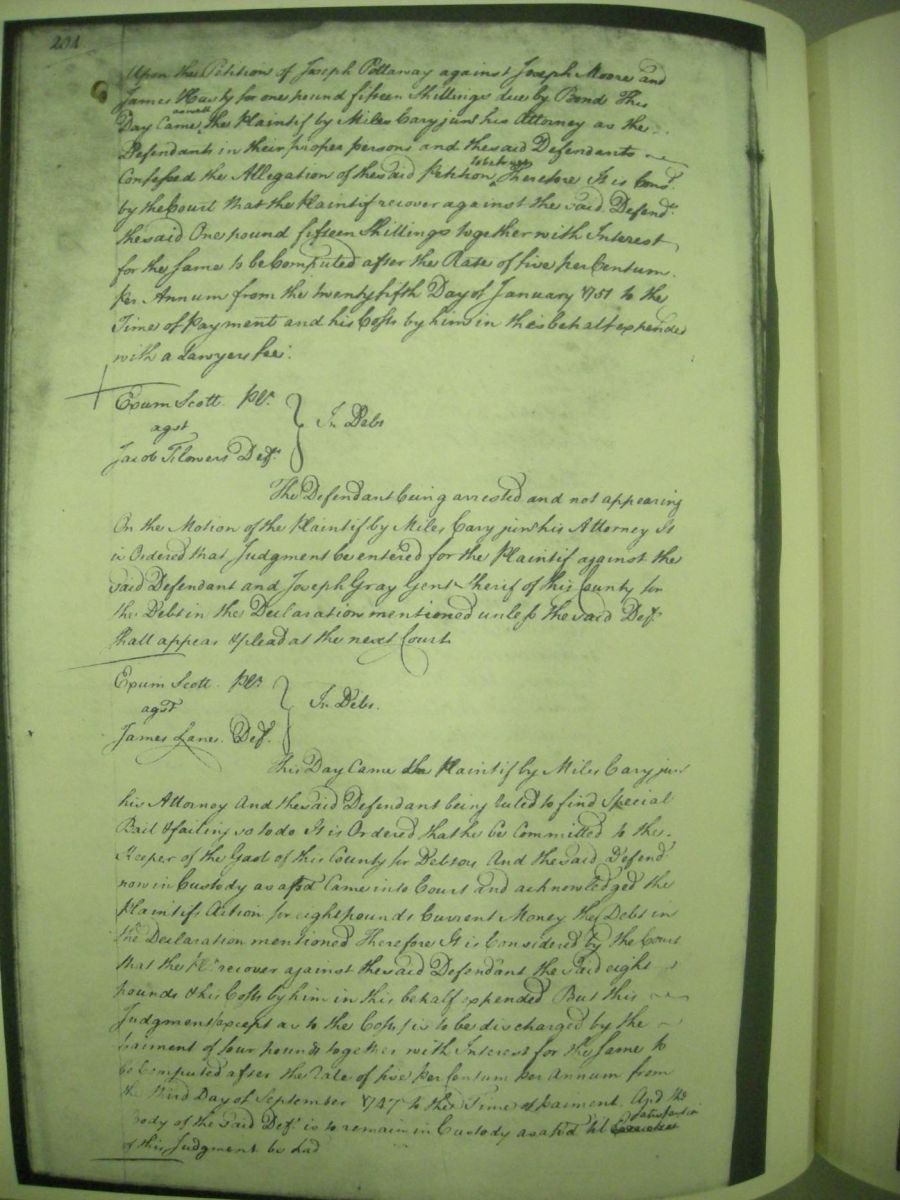 201
Upon the Petition of Joseph Pottaway against Joseph Moore and
James for one pound fifteen Shillings due by Bond This
as well
Day Came the Plaintif by Miles Cary junr his Attorney as the
Defendants in their proper persons and the said Defendants
to be true
Confessed the Allegation of the said Petition Therefore It is Consd
by the Court that the Plaintif recover against the said Defendts
the said One pound fifteen Shillings together with Interest
for the same to be Computed after the Rate of five per Centum
per Annum from the twenty fifth Day of January 1751 to the
Time of payment and his Costs by him in this behalf expended
with a Lawyers fee.
Exum Scott Plt.
agst
In Debt
Jacob Flowers Deft.
The Defendant being arrested and not appearing
On the Motion of the Plaintif by Miles Cary junr his Attorney It
is Ordered that Judgment be entered for the Plaintif against the
said Defendant and Joseph Gray Gent Sherif of this County for
the Debt in the Declaration mentioned unless the said Deft
shall appear & plead at the next Court
Exum Scott Plt.
agst
In Debt.
James Lane Deft.
This Day Came the Plaintif by Miles Cary junr
his Attorney And the said Defendant being ruled to find Special
Bail & failing so to do It is Ordered that he be Committed to the
Keeper of the Gaol of this County for Debtors And the said Defendt
now in Custody as afsd Came into Court and acknowledged the
Plaintifs Action for eight pounds Current Money the Debt in
the Declaration mentioned Therefore It is Considered by the Court
that the Plt. recover against the said Defendant the said eight
pounds & his Costs by him in this behalf expended But this
Judgment except as to the Costs is to be discharged by the
paiment of four pounds together with Interest for the same to
be Computed after the rate of five per Centum per Annum from
the third Day of September 1747 to the Time of paiment And the
satisfaction
Body of the said Deft. is to remain in Custody as afsd til
of this Judgment be had